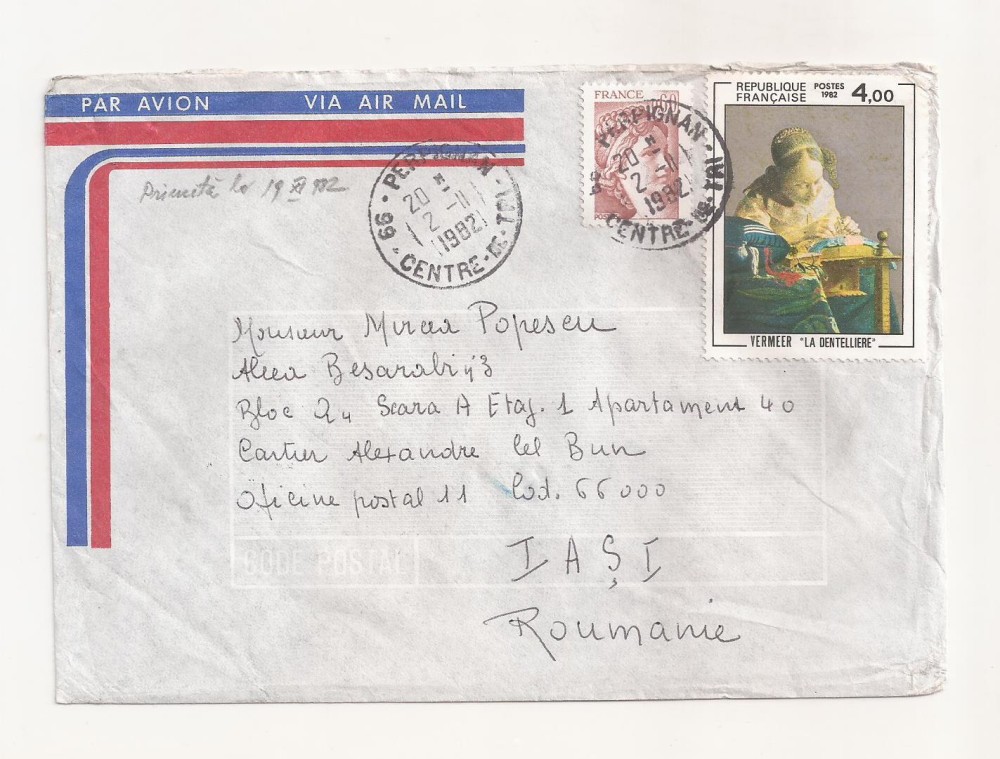 PAR AVION VIA AIR MAIL
Primită la 19 XI 982
66 - PERPIGNAN - CENTRE DE TRI
20
2 - 11
1982
FRANCE
66 - PERPIGNAN - CENTRE DE TRI
20
2 - 11
1982
REPUBLIQUE FRANÇAISE
POSTES 1982
4,00
VERMEER "LA DENTELLIERE"
Monsieur Mircea Popescu
Aleea Besarabiy 3
Bloc Scara A Etaj. 1 Apartament 40
Cartier Alexandre cel Bun
Oficine postal 11 Cod. 66000
CODE POSTAL
IAŞI
Roumanie